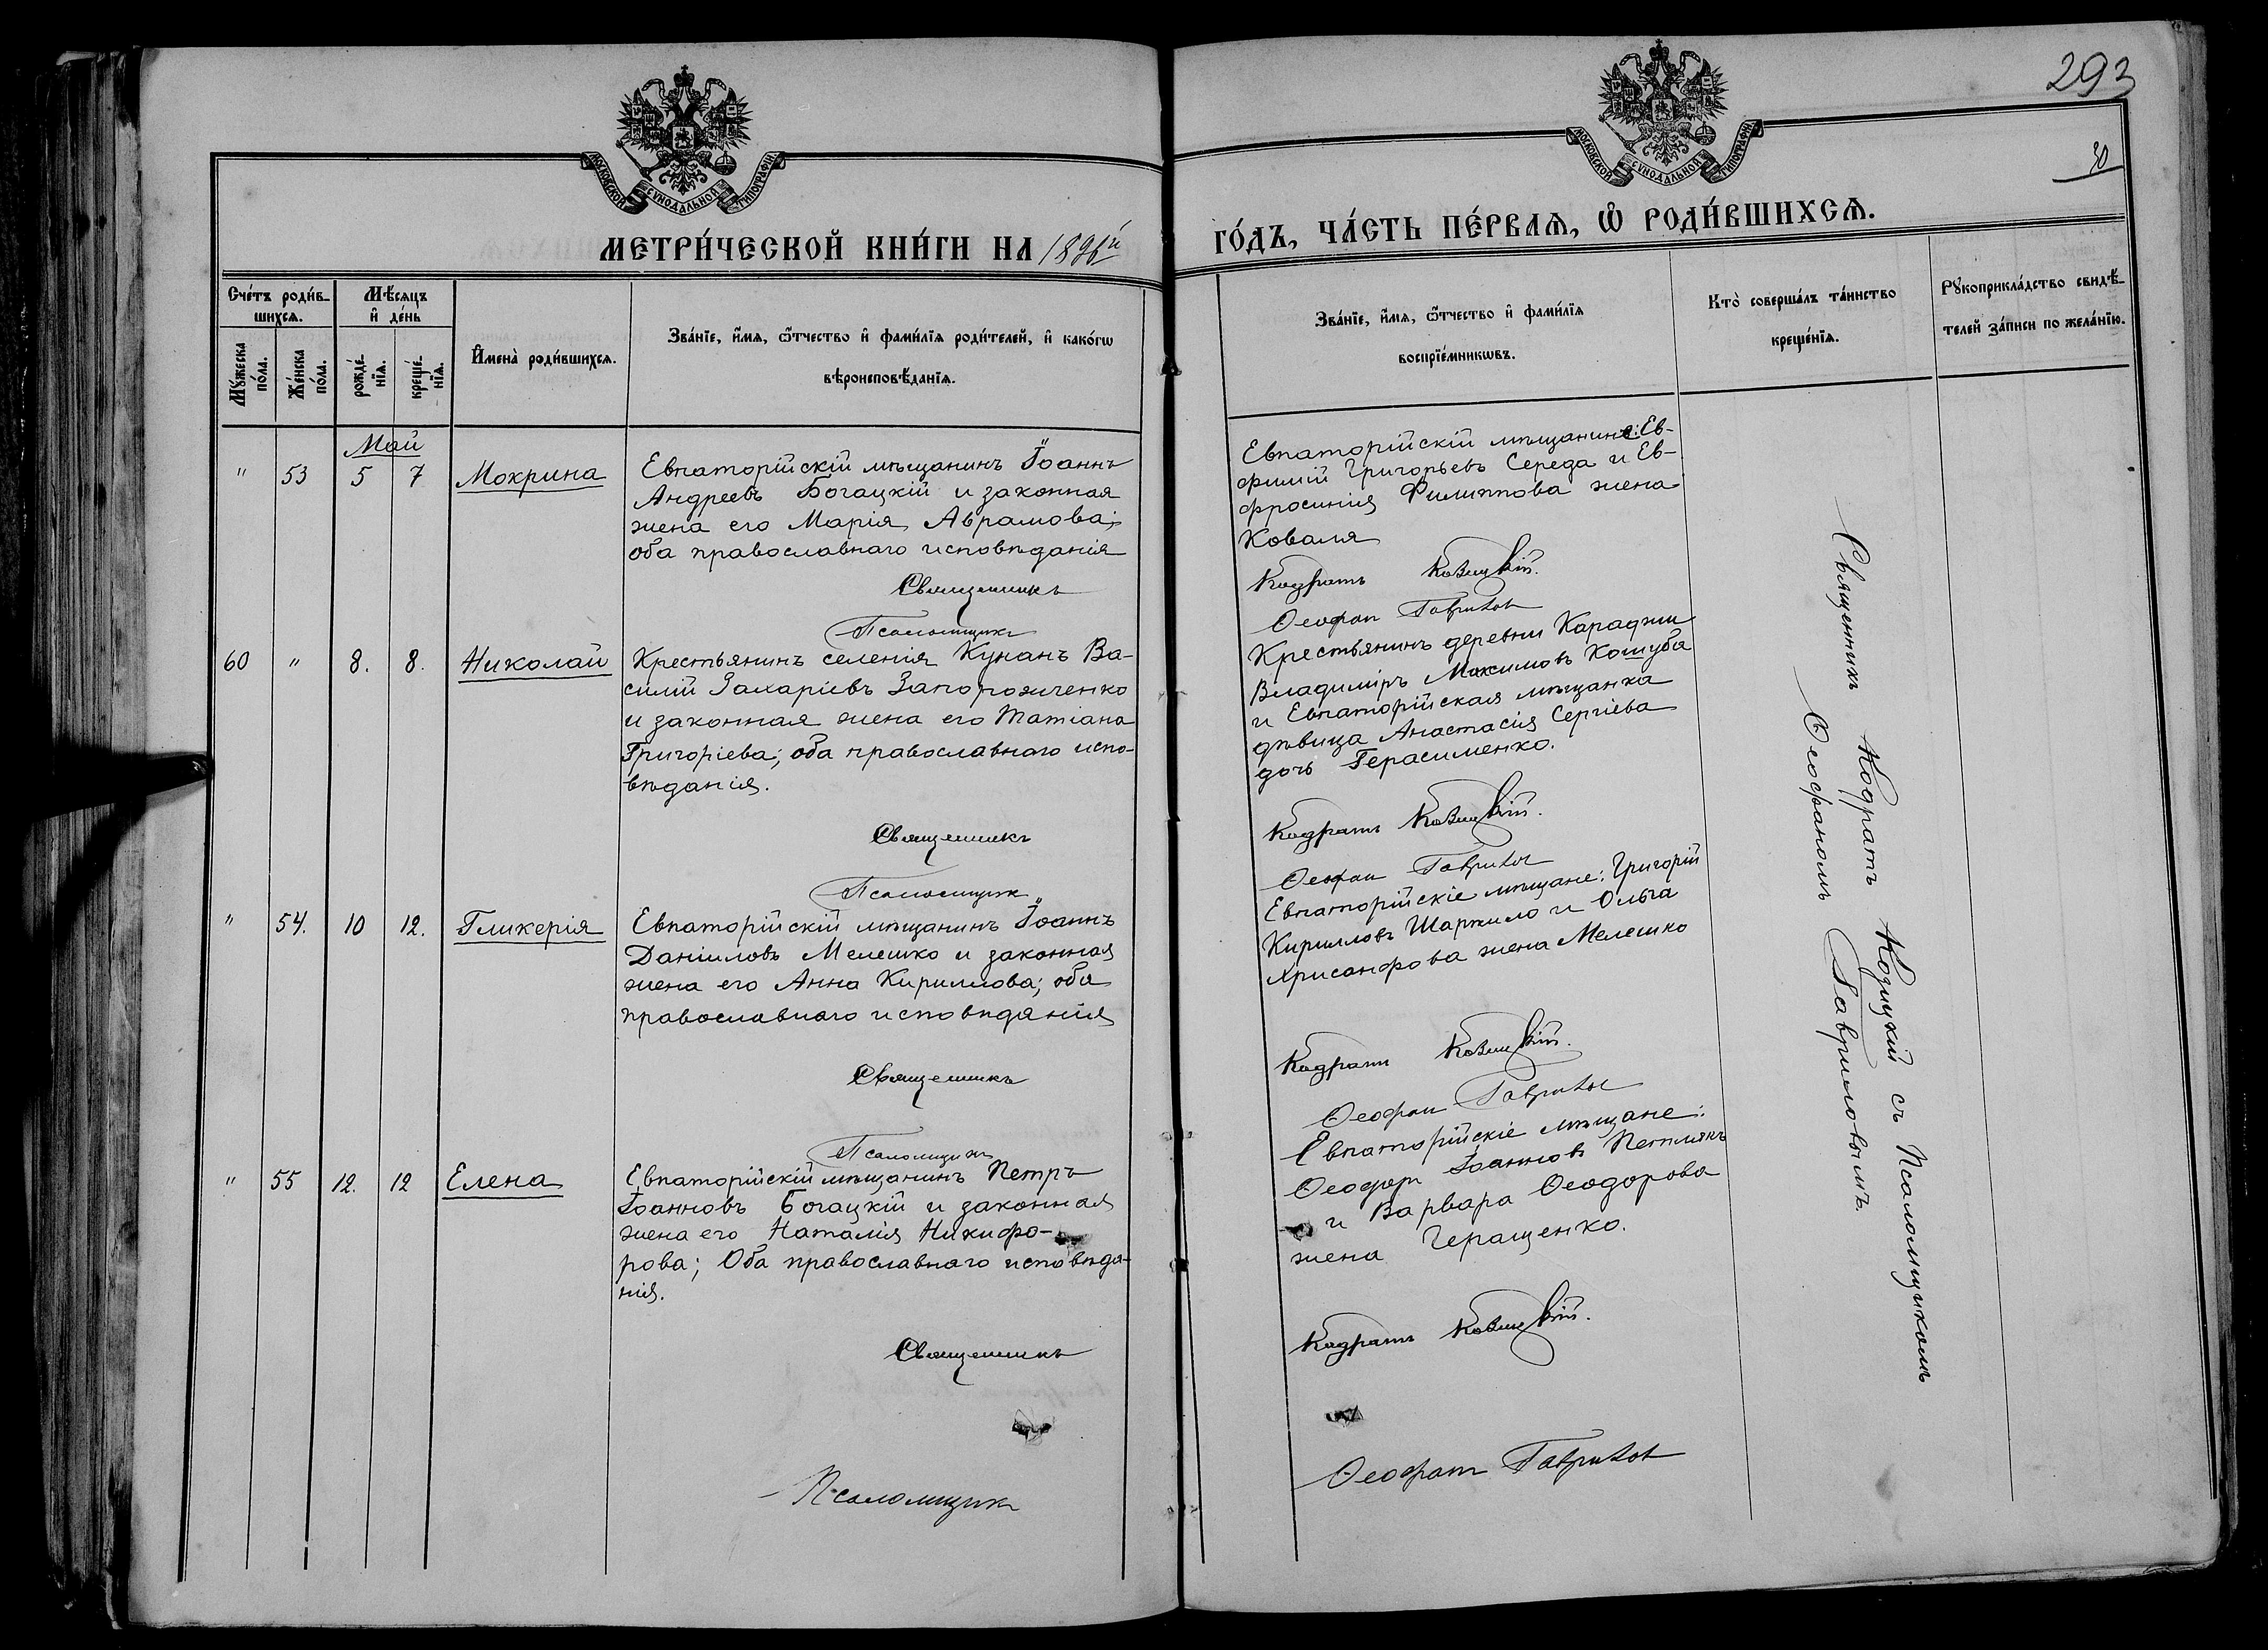 293
30
МОСКОВСКОЙ СѴНОДАЛЬНОЙ ТИПОГРАФІИ
МОСКОВСКОЙ СѴНОДАЛЬНОЙ ТИПОГРАФІИ
МЕТРИ́ЧЕСКОЙ КНИ́ГИ НА 1896й
ГО́ДЪ, ЧА́СТЬ ПЕ́РВАѦ, Ѽ РОДИ́ВШИХСѦ.
Сче́тъ роди́в-
шихсѧ.
Мѣ́сѧцъ
и҆ де́нь
Мꙋ́жеска
по́ла.
Же́нска
по́ла.
рожде́-
нїѧ.
креще́-
нїѧ.
И҆мена̀ роди́вшихсѧ.
Зва́нїе, и҆́мѧ, ѻ҆́тчество и҆ фами́лїѧ роди́телей, и҆ како́гѡ
вѣроисповѣ́данїѧ.
Зва́нїе, и҆́мѧ, ѻ҆́тчество и҆ фами́лїѧ
воспрїе́мникѡвъ.
Кто̀ соверша́лъ та́инство
креще́нїѧ.
Рꙋкоприкла́дство свидѣ́-
телей за́писи по жела́нїю.
Май
" 53 5 7 Мокрина
Евпаторійскій мѣщанинъ Іоаннъ
Андреевъ Богацкій и законная
жена его Марія Аврамова;
оба православнаго исповѣданія
Священникъ
Псаломщикъ
Евпаторійскій мѣщанинъ: Ев-
фимій Григорьевъ Середа и Ев-
фросинія Филиппова жена
Коваля
Кодратъ Козицкій.
Ѳеофан Гаврилов
60 " 8. 8. Николай
Крестьянинъ селенія Кунанъ Ва-
силій Захаріевъ Запорожченко
и законная жена его Татіана
Григоріева; оба православнаго испо-
вѣданія.
Священникъ
Псаломщик
Крестьянинъ деревни Караджи
Владиміръ Максимовъ Кошуба
и Евпаторійская мѣщанка
дѣвица Анастасія Сергіева
дочь Герасименко.
Кодратъ Козицкій.
Ѳеофан Гаврилов
" 54. 10 12. Гликерія
Евпаторійскій мѣщанинъ Іоаннъ
Даніиловъ Мелешко и законная
жена его Анна Кириллова; оба
православнаго исповѣданія
Священникъ
Псаломщикъ
Евпаторійскіе мѣщане: Григорій
Кирилловъ Шаржило и Ольга
Хрисанфова жена Мелешко
Кодратъ Козицкій.
Ѳеофан Гаврилов
" 55 12. 12 Елена
Евпаторійскій мѣщанинъ Петръ
Іоанновъ Богацкій и законная
жена его Наталія Никифо-
рова; Оба православнаго исповѣда-
нія.
Священникъ
Псаломщик
Евпаторійскіе мѣщане:
Ѳеодоръ Іоанновъ
и Варвара Ѳеодорова
жена Геращенко.
Кодратъ Козицкій.
Ѳеофан Гаврилов
Священникъ Кодратъ Козицкій съ Псаломщикомъ
Ѳеофаномъ Гавриловымъ.